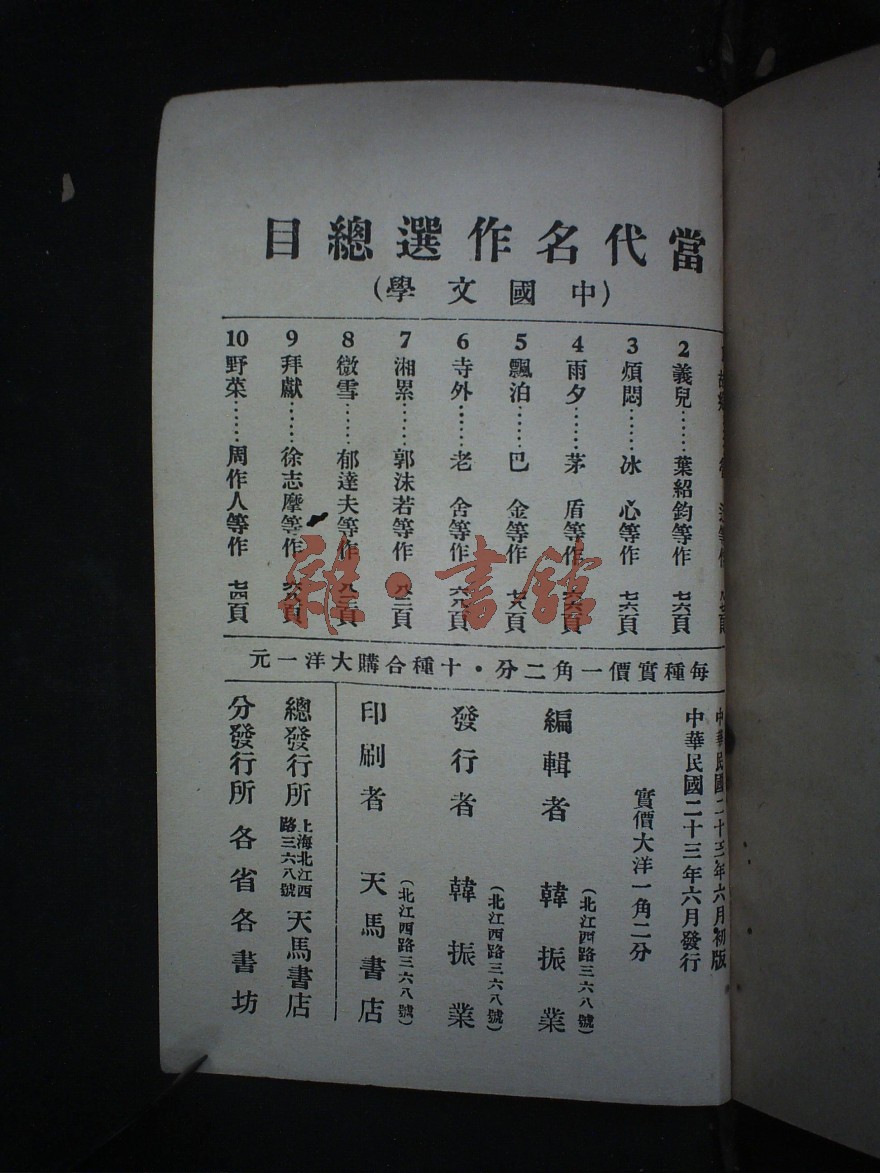 當代名作選總目
(中國文學)
2 義兒……葉紹鈞等作 七六頁
3 煩悶……冰 心等作 七六頁
4 雨夕……茅 盾等作 六六頁
5 飄泊……巴 金等作 七八頁
6 寺外……老 舍等作 六八頁
7 湘累……郭沫若等作 八二頁
8 微雪……郁達夫等作 八二頁
9 拜獻……徐志摩等作 六八頁
10 野菜……周作人等作 七四頁
每種實價一角二分·十種合購大洋一元
中華民國二十三年六月初版
中華民國二十三年六月發行
實價大洋一角二分
編輯者 韓振業
(北江西路三六八號)
發行者 韓振業
(北江西路三六八號)
印刷者 天馬書店
(北江西路三六八號)
總發行所 上海北江西路三六八號 天馬書店
分發行所 各省各書坊
雜·書館